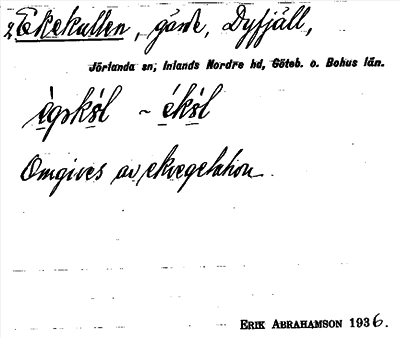 Ekekullen, gärde, Dyfjäll,
Jörlanda sn, Inlands Nordre hd, Göteb. o. Bohus län.
Omgives av ekvegetation.
ERIK ABRAHAMSON 1936.